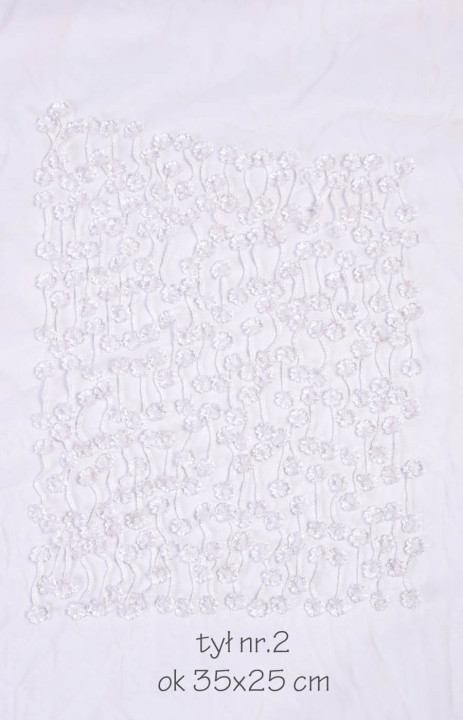 tył nr.2
ok 35x25 cm